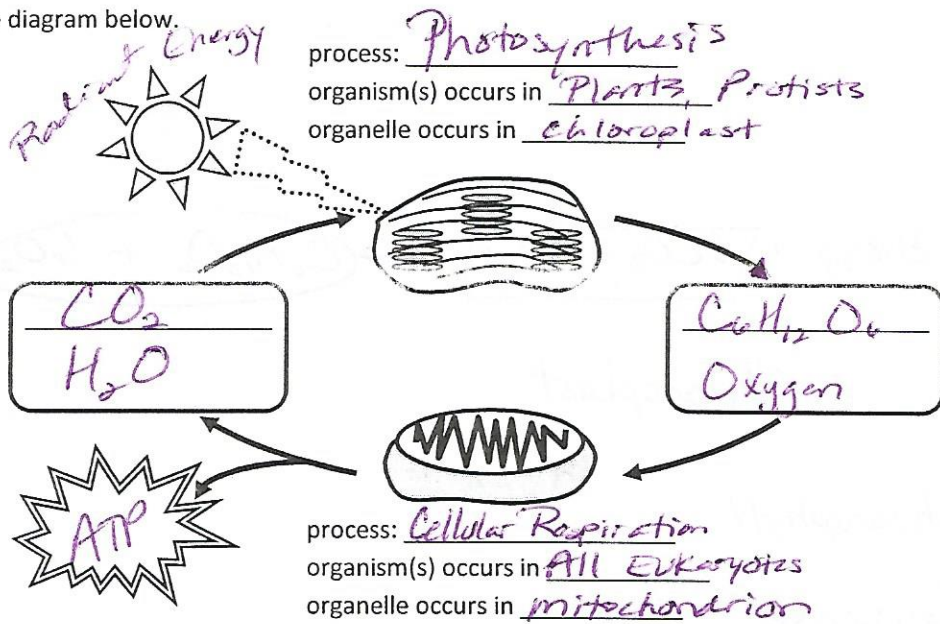 diagram below.
Radiant Energy
process: Photosynthesis
organism(s) occurs in Plants, Protists
organelle occurs in chloroplast
CO₂
H₂O
C₆H₁₂O₆
Oxygen
ATP
process: Cellular Respiration
organism(s) occurs in All Eukaryotes
organelle occurs in mitochondrion